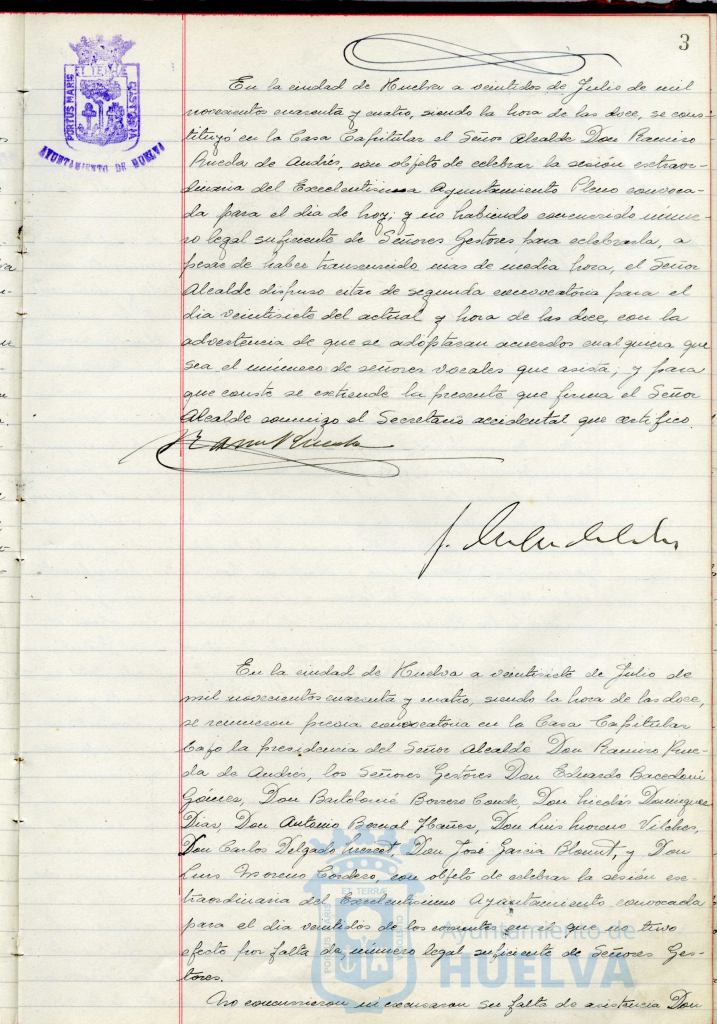 3
PORTUS MARIS
ET TERRÆ
CUSTODIA
AYUNTAMIENTO DE HUELVA
En la ciudad de Huelva a veintidos de Julio de mil
novecientos cuarenta y cuatro, siendo la hora de las doce, se cons-
tituyó en la Casa Capitular el Señor Alcalde Don Ramiro
Rueda de Andrés, con objeto de celebrar la sesión extraor-
dinaria del Excelentisimo Ayuntamiento Pleno convoca-
da para el dia de hoy; y no habiendo concurrido núme-
ro legal suficiente de Señores Gestores para celebrarla, a
pesar de haber transcurrido mas de media hora, el Señor
Alcalde dispuso citar de segunda convocatoria para el
dia veintisiete del actual y hora de las doce, con la
advertencia de que se adoptaran acuerdos cualquiera que
sea el número de señores vocales que asista; y para
que conste se extiende la presente que firma el Señor
Alcalde conmigo el Secretario accidental que certifico.
Ramiro Rueda
En la ciudad de Huelva a veintisiete de Julio de
mil novecientos cuarenta y cuatro, siendo la hora de las doce,
se reunieron previa convocatoria en la Casa Capitular
bajo la presidencia del Señor Alcalde Don Ramiro Rue-
da de Andrés, los Señores Gestores Don Eduardo
Gómez, Don Bartolomé Borrero Conde, Don Nicolás Dominguez
Diaz, Don Antonio Bernal Ibañez, Don Luis Moreno Vilches,
Don Carlos Delgado, Don José Garcia, y Don
Luis Moreno Cordero, con objeto de celebrar la sesión ex-
traordinaria del Excelentisimo Ayuntamiento convocada
para el dia veintidos de los corrientes en el que no tuvo
efecto por falta de número legal suficiente de Señores Ges-
tores.
No concurrieron ni excusaron su falta de asistencia Don
ET TERRÆ
PORTUS MARIS
CUSTODIA
Ayuntamiento de
HUELVA